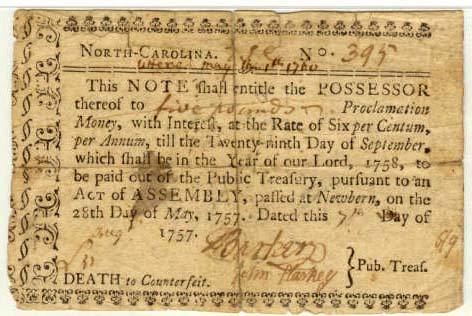 NORTH-CAROLINA. No. 395
May 1760
This NOTE shall entitle the POSSESSOR
thereof to five pounds Proclamation
Money, with Interest, at the Rate of Six per Centum,
per Annum, till the Twenty-ninth Day of September,
which shall be in the Year of our Lord, 1758, to
be paid out of the Public Treasury, pursuant to an
ACT of ASSEMBLY, passed at Newbern, on the
28th Day of May, 1757. Dated this 7th Day of
Aug 1757.
Jno Starkey } Pub. Treas.
DEATH to Counterfeit.